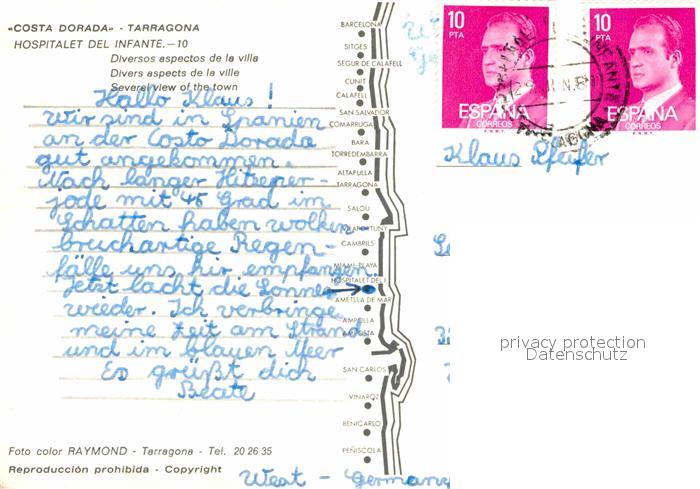 «COSTA DORADA» - TARRAGONA
HOSPITALET DEL INFANTE.—10
Diversos aspectos de la villa
Divers aspects de la ville
Several view of the town
Hallo Klaus !
Wir sind in Spanien
an der Costo Dorada
gut angekommen.
Nach langer Hitzeper-
jode mit 45 Grad im
Schatten haben wolken-
bruchartige Regen-
fälle uns hir empfangen.
Jetzt lacht die Sonne
wieder. Ich verbringe
meine Zeit am Strand
und im blauen Meer
Es grüßt dich
Beate
Foto color RAYMOND - Tarragona - Tel. 20 26 35
Reproducción prohibida - Copyright
BARCELONA
SITGES
SEGUR DE CALAFELL
CUNIT
CALAFELL
SAN SALVADOR
COMARRUGA
BARA
TORREDEMBARRA
ALTAFULLA
TARRAGONA
SALOU
CAMBRILS
MIAMI-PLAYA
HOSPITALET DEL I.
AMETLLA DE MAR
AMPOLLA
SAN CARLOS
VINAROZ
BENICARLO
PEÑISCOLA
10
PTA
ESPAÑA
CORREOS
F.N.M.T.
10
PTA
ESPAÑA
CORREOS
F.N.M.T.
Klaus Pfeifer
privacy protection
Datenschutz
West - Germany